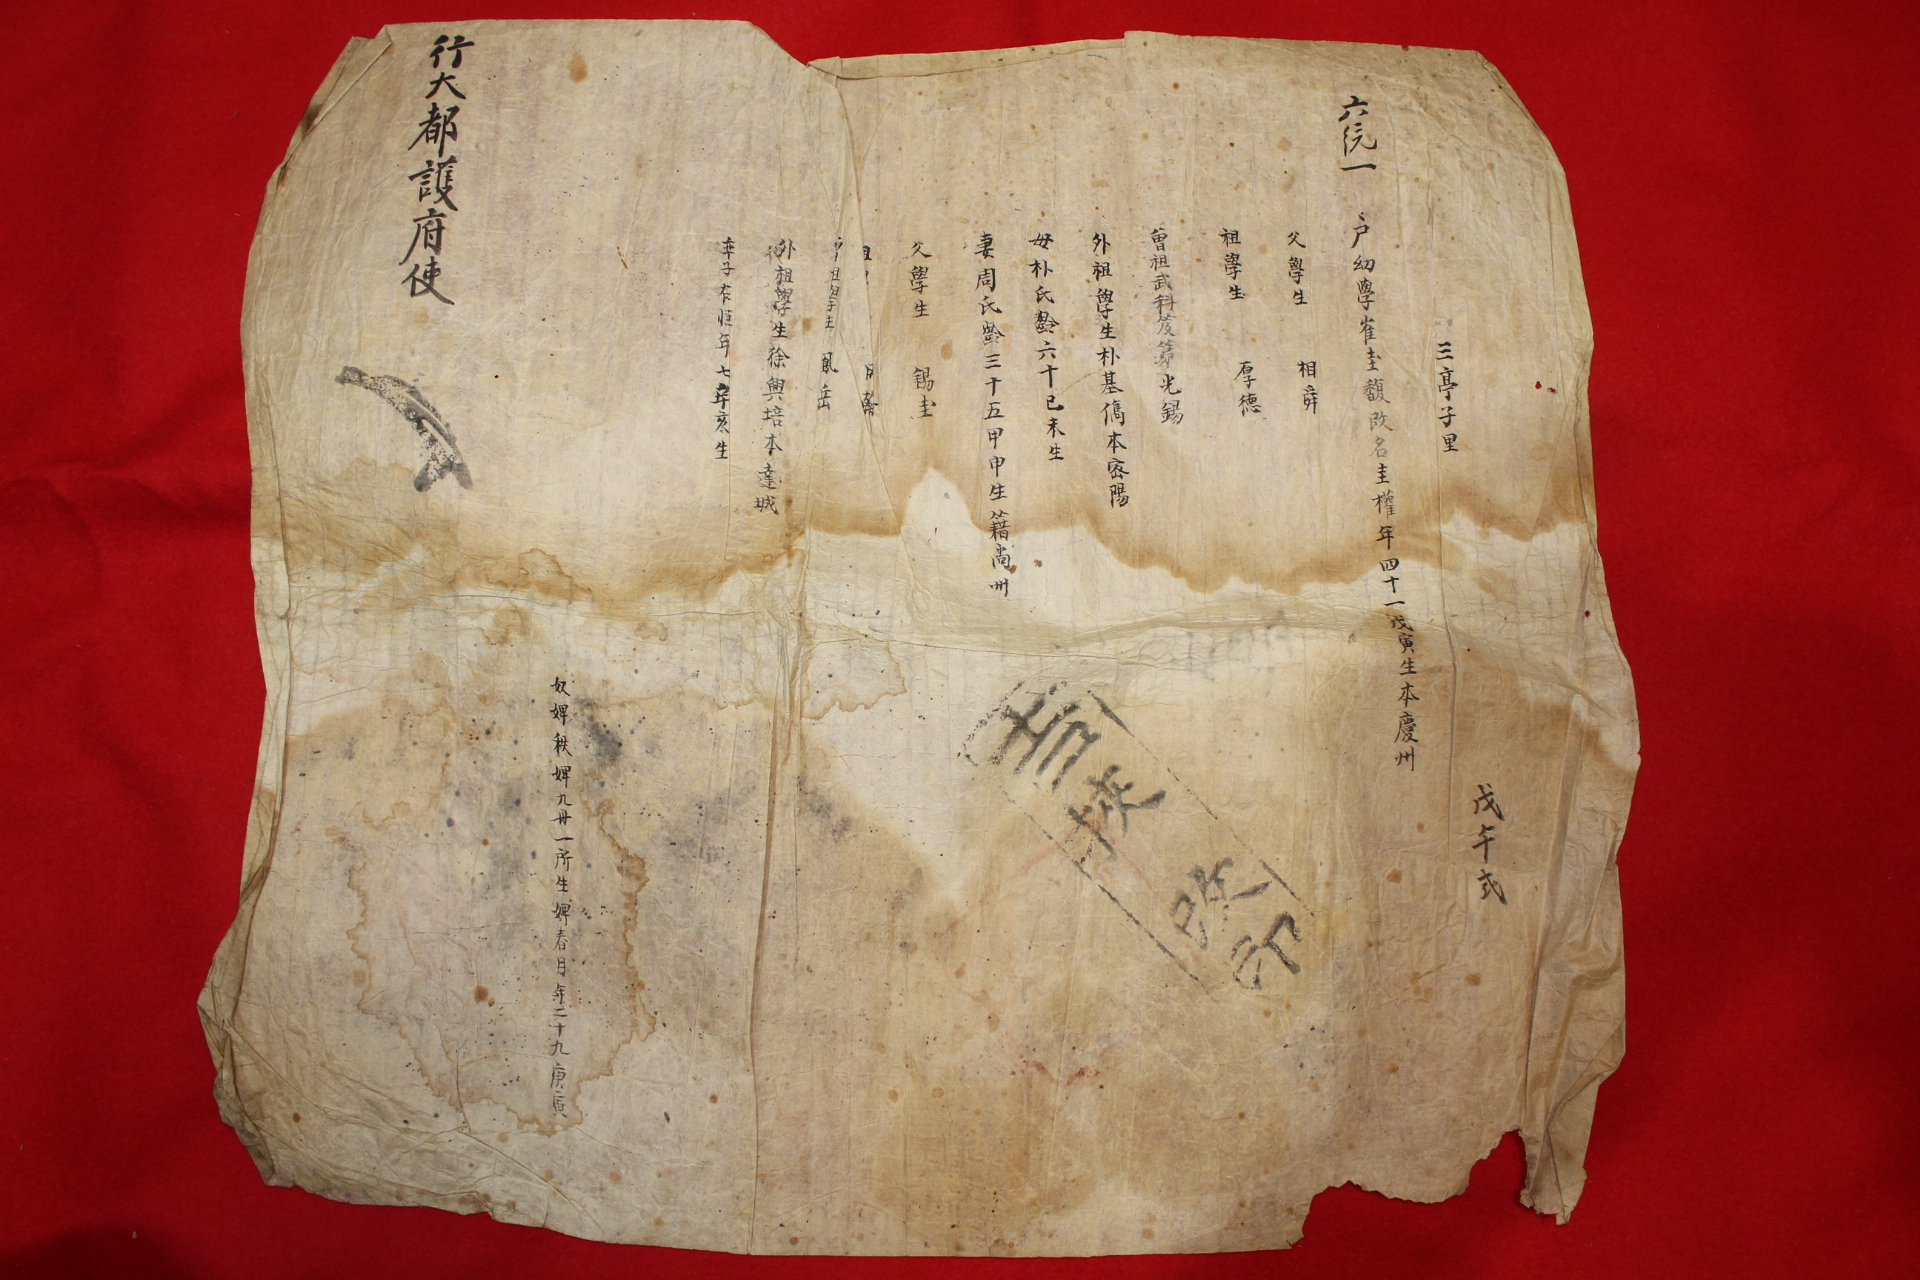 戊午式
三亭子里
六統一
戶幼學崔圭馥改名圭權年四十一戊寅生本慶州
父學生 相舜
祖學生 厚德
曾祖武科及第光錫
外祖學生朴基僑本密陽
母朴氏齡六十己未生
妻周氏齡三十五甲申生籍尙州
父學生 錫圭
曾祖學生 鳳岳
外祖學生徐興培本達城
率子 年七辛亥生
奴婢秩婢九冊一所生婢春月年二十九庚寅
行大都護府使
周挾
改印